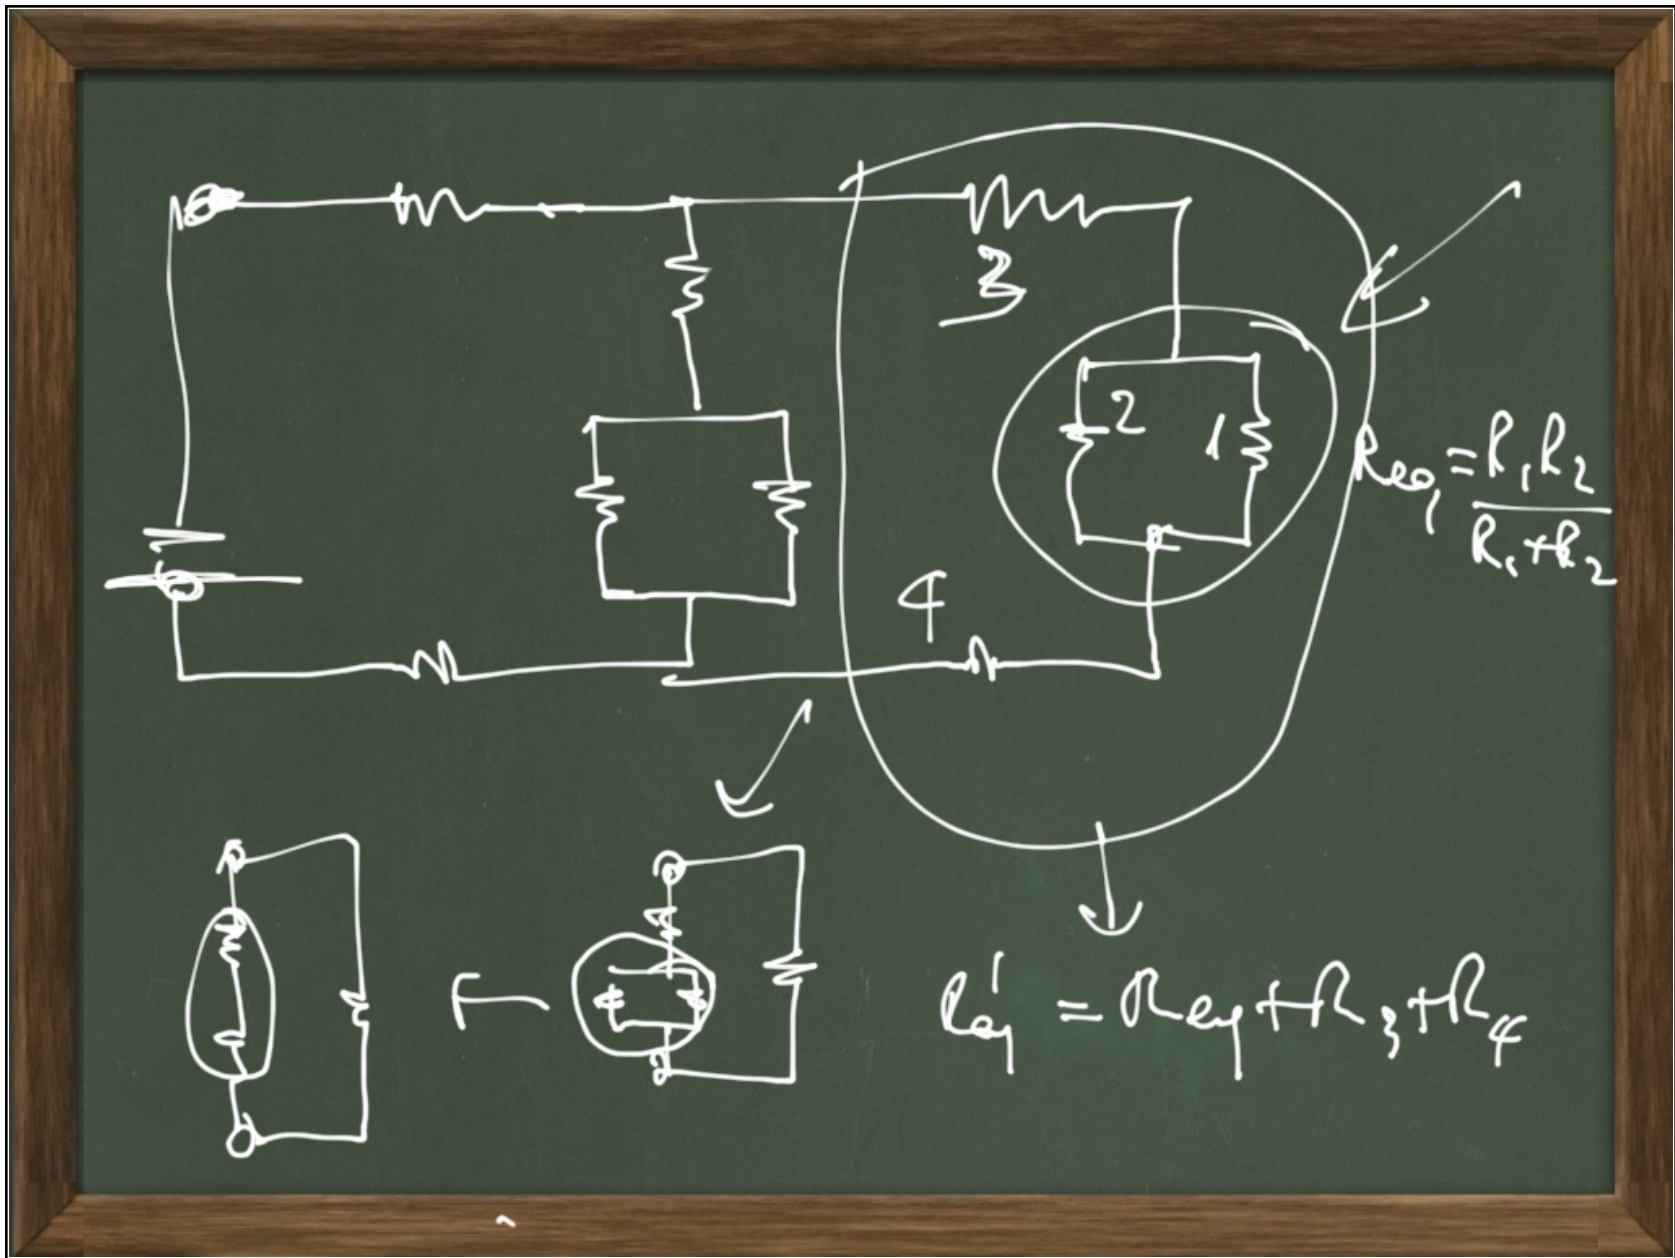 3
2 1
Req₁ = R₁R₂
R₁+R₂
4
R'eq = Req+R₃+R₄